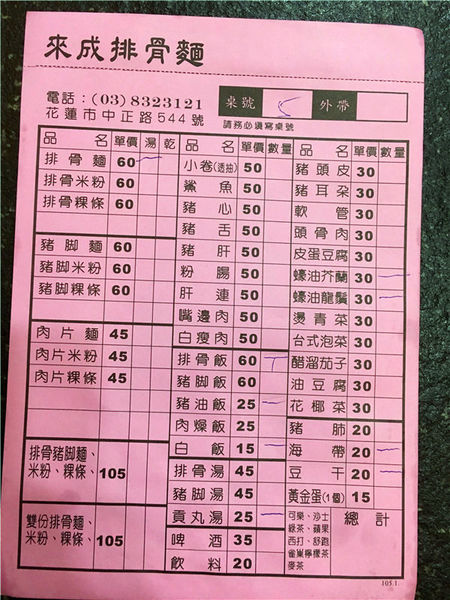 來成排骨麵
電話：(03)8323121
花蓮市中正路544號
桌號 外帶
請務必填寫桌號
品名 單價 湯 乾
排骨麵 60
排骨米粉 60
排骨粿條 60
豬脚麵 60
豬脚米粉 60
豬脚粿條 60
肉片麵 45
肉片米粉 45
肉片粿條 45
排骨豬脚麵、
米粉、粿條、 105
雙份排骨麵、
米粉、粿條、 105
品名 單價 數量
小卷(透抽) 50
鯊魚 50
豬心 50
豬舌 50
豬肝 50
粉腸 50
肝連 50
嘴邊肉 50
白瘦肉 50
排骨飯 60
豬脚飯 60
豬油飯 25
肉燥飯 25
白飯 15
排骨湯 45
豬脚湯 45
貢丸湯 25
啤酒 35
飲料 20
品名 單價 數量
豬頭皮 30
豬耳朶 30
軟管 30
頭骨肉 30
皮蛋豆腐 30
蠔油芥蘭 30
蠔油龍鬚 30
燙青菜 30
台式泡菜 30
醋溜茄子 30
油豆腐 30
花椰菜 30
豬肺 20
海帶 20
豆干 20
黃金蛋(1個) 15
可樂、沙士
綠茶、蘋果
西打、舒跑
雀巢檸檬茶
麥茶
總計
105.1.